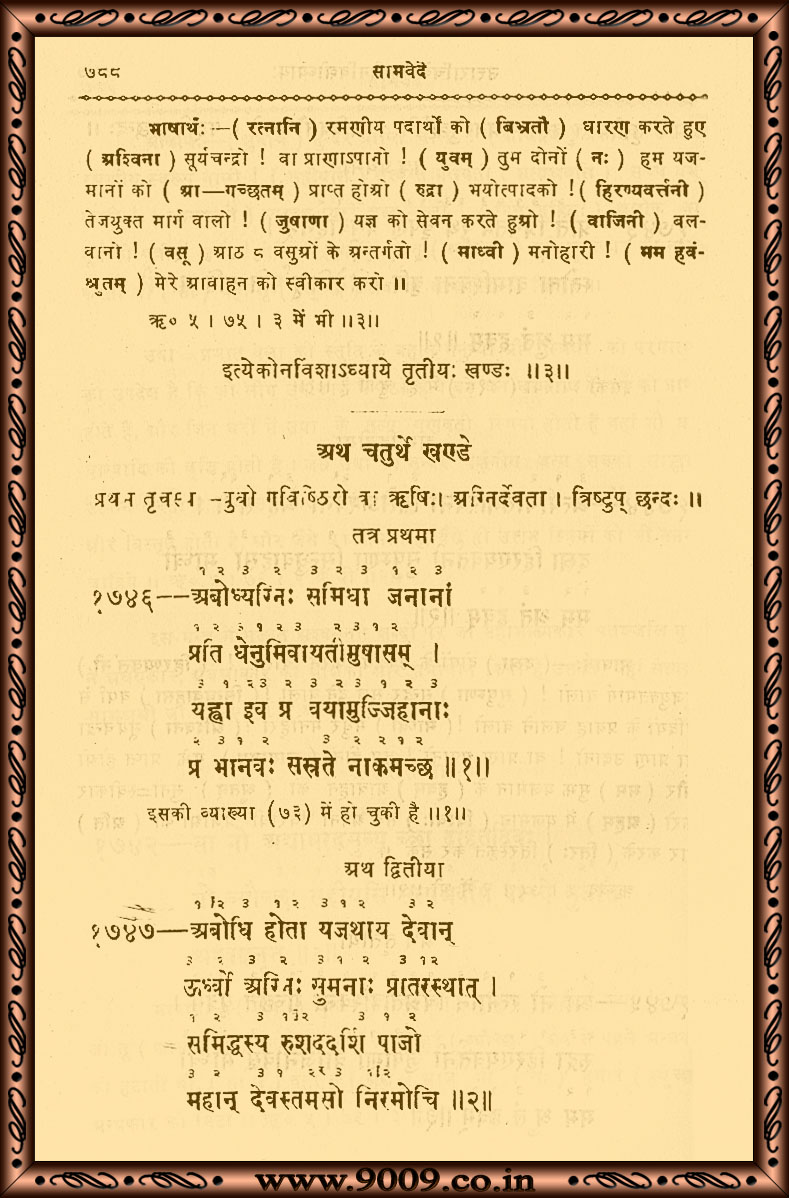 ७८८ सामवेदे
भाषार्थः—( रत्नानि ) रमणीय पदार्थों को ( बिभ्रतौ ) धारण करते हुए
( अश्विना ) सूर्यचन्द्रो ! वा प्राणाऽपानो ! ( युवम् ) तुम दोनों ( नः ) हम यज-
मानों को ( आ—गच्छतम् ) प्राप्त होओ ( रुद्रा ) भयोत्पादको ! ( हिरण्यवर्त्तनी )
तेजयुक्त मार्ग वालो ! ( जुषाणा ) यज्ञ को सेवन करते हुओ ! ( वाजिनी ) बल-
वानो ! ( वसू ) आठ ८ वसुओं के अन्तर्गतो ! ( माध्वी ) मनोहारी ! ( मम हवं-
श्रुतम् ) मेरे आवाहन को स्वीकार करो ॥
ऋ० ५ । ७५ । ३ में भी ॥३॥
इत्येकोनविंशाऽध्याये तृतीयः खण्डः ॥३॥
अथ चतुर्थे खण्डे
गविष्ठिरो वा ऋषिः। अग्निर्देवता । त्रिष्टुप् छन्दः ॥
तत्र प्रथमा
१ २ ३ २ ३ २ ३ १ २ ३
१७४६—अबोध्यग्निः समिधा जनानां
१ २ ३ १ २ ३ २ ३ १ २
प्रति धेनुमिवायतीमुषासम् ।
३ १ २३ २ ३ २ ३ १ २ ३
यह्वा इव प्र वयामुज्जिहानाः
२ ३ १ २ ३ २ २१२
प्र भानवः सस्रते नाकमच्छ ॥१॥
इसकी व्याख्या (७३) में हो चुकी है ॥१॥
अथ द्वितीया
१ २ ३ १ २ ३ १ २ ३ २
१७४७—अबोधि होता यजथाय देवान्
३ २ ३ २ ३ १ २ ३ १२
ऊर्ध्वो अग्निः सुमनाः प्रातरस्थात् ।
समिद्धस्य रुशददर्शि पाजो
महान् देवस्तमसो निरमोचि ॥२॥
www.9009.co.in